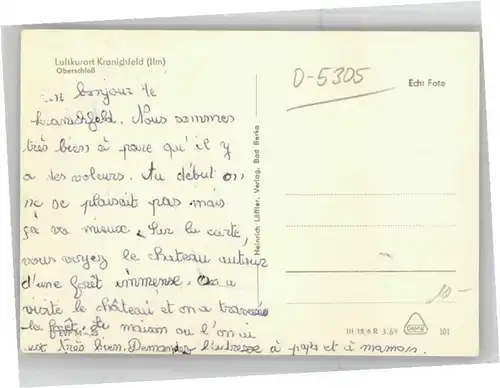 Luftkurort Kranichfeld (Ilm)
Oberschloß
bonjour de
Kranichfeld. Nous sommes
très bien à parc qu'il y
a des voleurs. Au début on
ne se plaisait pas mais
ça va mieux. Sur la carte,
vous voyez le chateau autour
d'une forêt immense. On a
visité le château et on a traversé
la forêt. La maison ou l'on
est très bien. Demander l'adresse à papa et à maman.
Heinrich Löffler, Verlag, Bad Berka
D-5305
Echt Foto
10.-
III 18 6 R 3.69
101